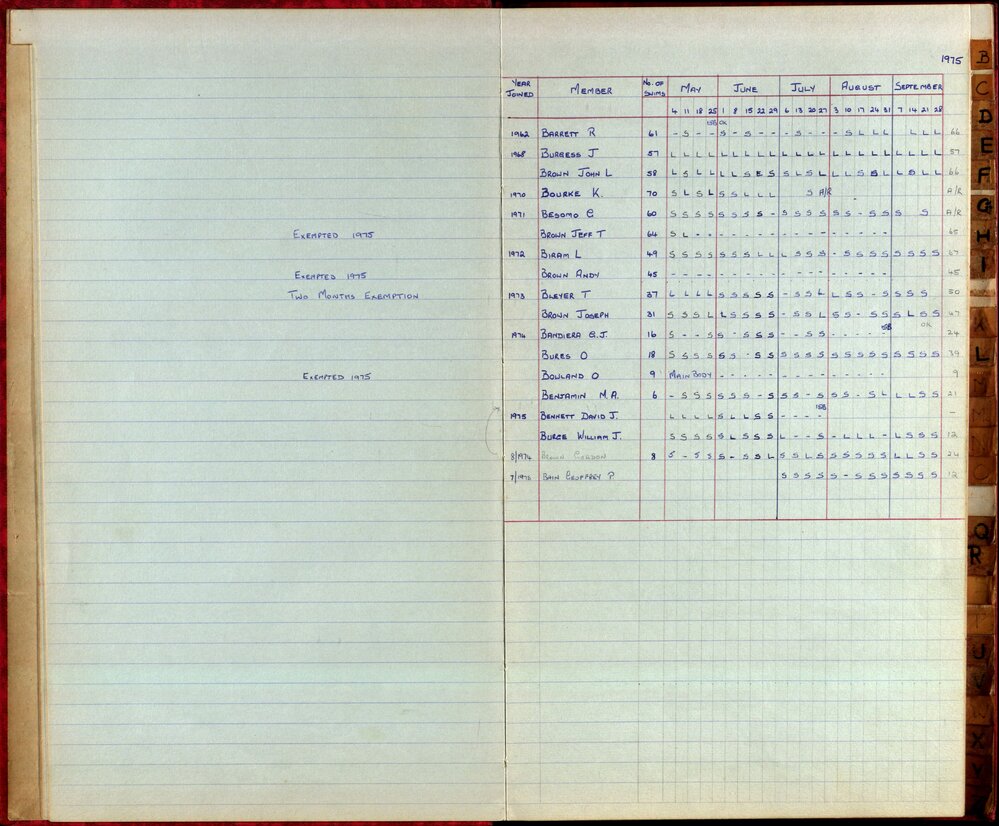 1975
YEAR JOINED MEMBER No. OF SWIMS MAY JUNE JULY AUGUST SEPTEMBER
4 11 18 25 1 8 15 22 29 6 13 20 27 3 10 17 24 31 7 14 21 28
1962 BARRETT R 61 - S - - S - S - - - - S - - - S L L L L L L 66
1968 BURGESS J 57 L L L L L L L L L L L L L L L L L L L L L L 57
BROWN JOHN L 58 66
1970 BOURKE K. 70 S L S L S S L L L S A/R A/R
1971 BESOMO C 60 S S S S S S S S - S S S S S S - S S S S A/R
EXEMPTED 1975 BROWN JEFF T 64 S L - - - - - - - - - - - - - - - - 65
1972 BIRAM L 49 S S S S S S S L L L S S S - S S S S S S S S 67
EXEMPTED 1975 BROWN ANDY 45 - - - - - - - - - - - - - - - - - - 45
TWO MONTHS EXEMPTION 1973 BLEYER T 37 L L L L S S S S S - S S L L S S - S S S S 50
BROWN JOSEPH 31 S S S L L S S S S - S S L S S - S S S L S S 47
1974 BANDIERA G.J. 16 S - - S S - S S S - - S S - - - - - OK 24
BURES O 18 S S S S S S - S S S S S S S S S S S S S S S 39
EXEMPTED 1975 BOWLAND O 9 MAIN BODY - - - - - - - - - - - - - - 9
BENJAMIN M.A. 6 - S S S S S S - S S S - S S - S L L L S S 21
1975 BENNETT DAVID J. L L L L S L L S S - - - - -
BURGE WILLIAM J. S S S S S L S S S L - - S - L L L - L S S S 12
8/1974 BROWN GORDON 8 S - S S S - S S L S S L S S S S S S L L S S 24
7/1975 BAIN GEOFFREY P S S S S S - S S S S S S S 12
B
C
D
E
F
G
H
I
L
Q
R
T
U
V
X